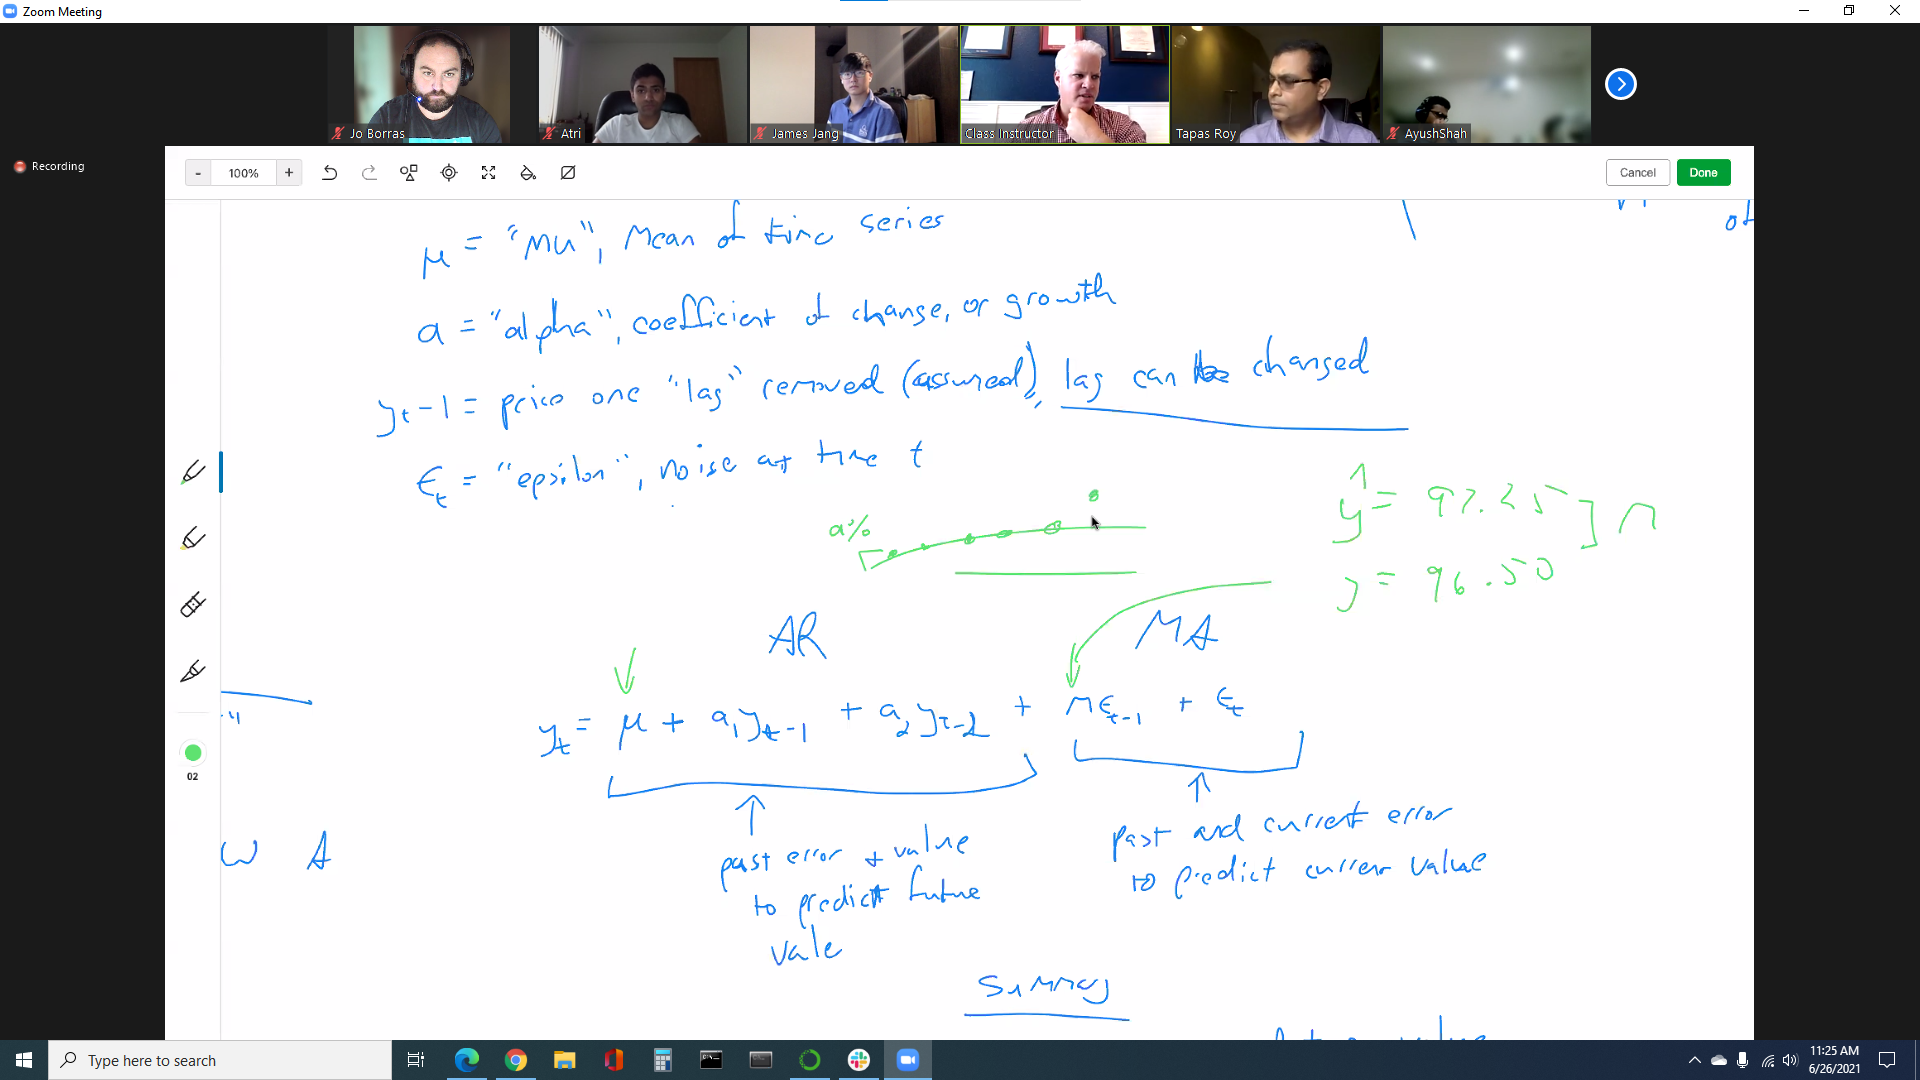 Zoom Meeting
Jo Borras
Atri
James Jang
Class Instructor
Tapas Roy
AyushShah
Recording
- 100% +
Cancel
Done
μ = "MU", Mean of time series
of
a = "alpha", coefficient of change, or growth
yt-1 = price one "lag" removed (assumed), lag can be changed
ϵt = "epsilon", noise at time t
a%
ŷ = 97.25
y = 96.50
AR
MA
yt = μ + a1yt-1 + a2yt-2 + mϵt-1 + ϵt
02
W A
past error + value
to predict future
vale
past and current error
to predict current value
Summary
value
Type here to search
11:25 AM
6/26/2021